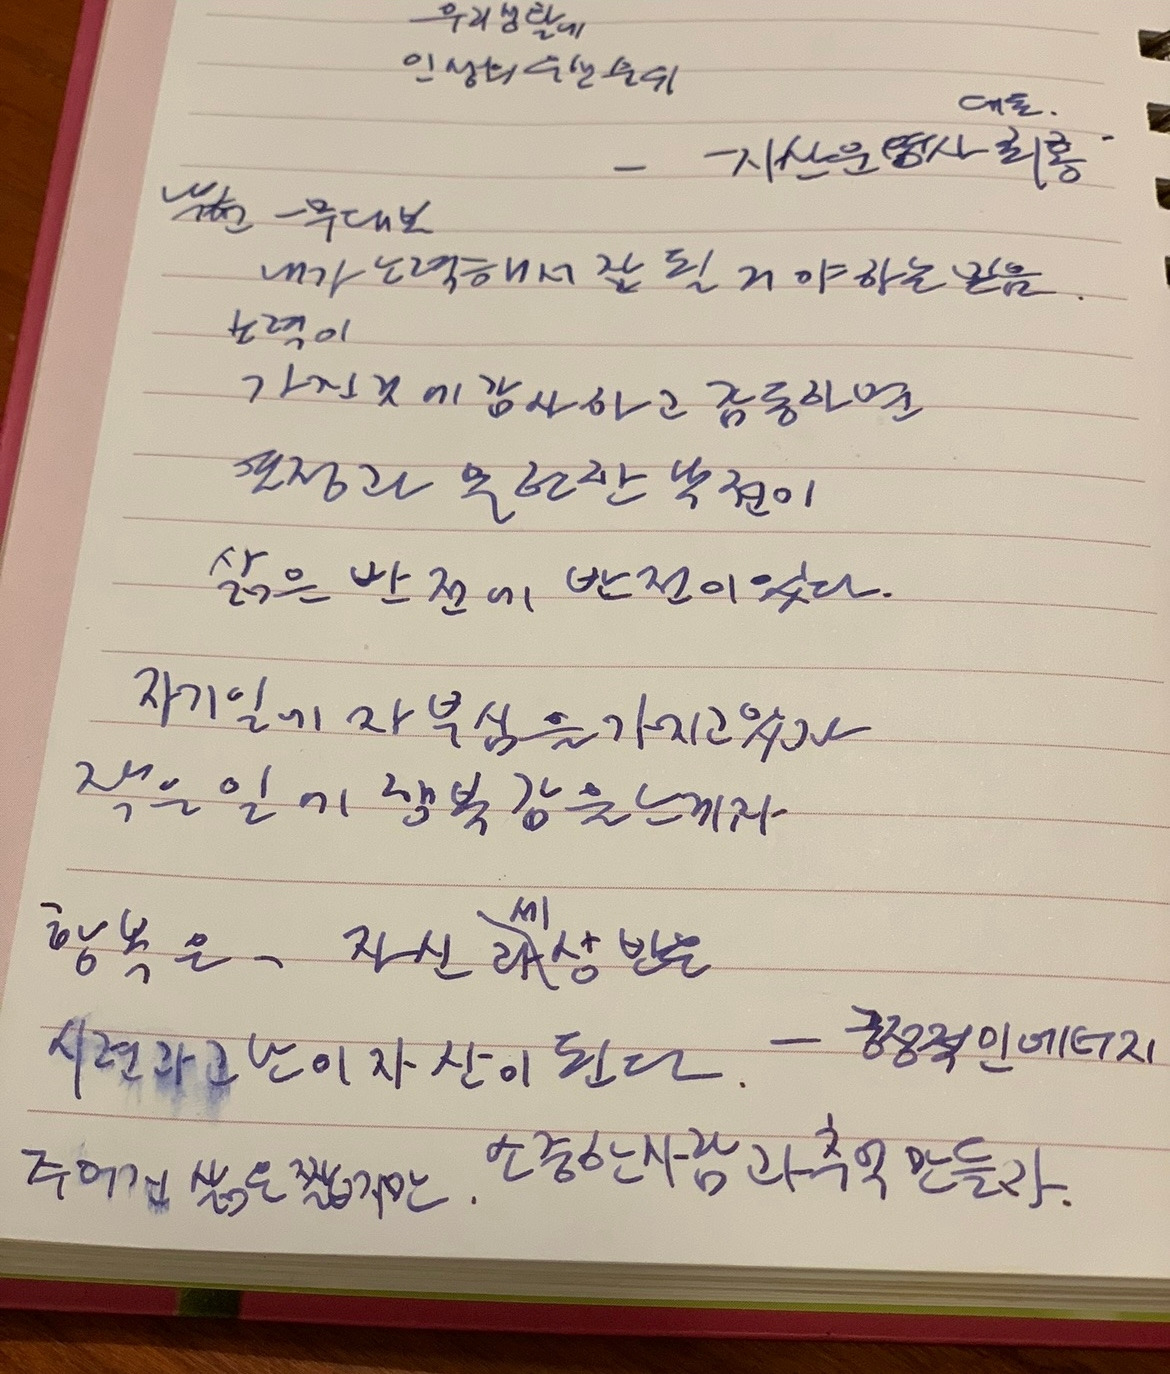 우리생활에
인생의
대표.
- 자산운영사 최홍
무대보
내가 노력해서 잘 될 거야하는 믿음.
노력이
가진것에 감사하고 감동하면
열정과 올인한 복권이
삶은 반전에 반전이있다.
자기일에 자부심을가지고있자
작은일에 행복감을느끼자
행복은、 자신 세상반은
시련과고난이자산이 된다. - 긍정적인에너지
주어진 삶은짧지만. 소중한사람과추억만들라.